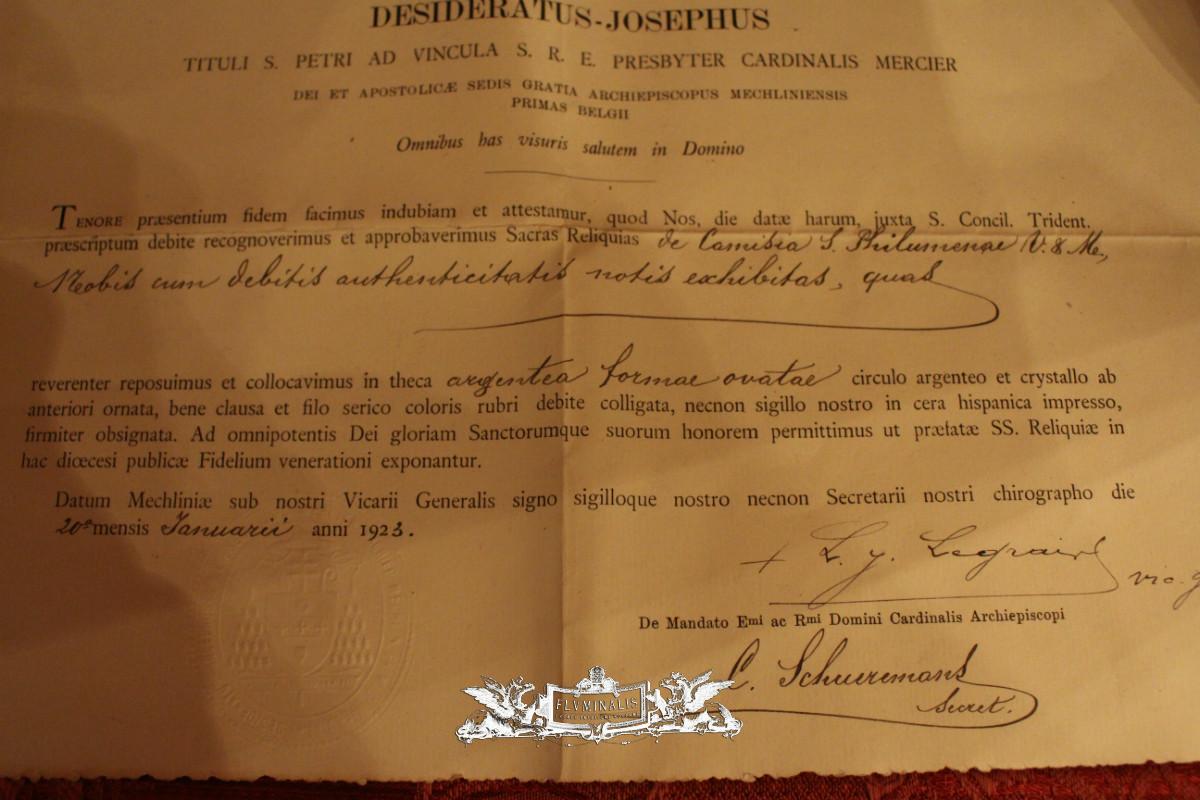 DESIDERATUS-JOSEPHUS
TITULI S. PETRI AD VINCULA S. R. E. PRESBYTER CARDINALIS MERCIER
DEI ET APOSTOLICÆ SEDIS GRATIA ARCHIEPISCOPUS MECHLINIENSIS
PRIMAS BELGII
Omnibus has visuris salutem in Domino
TENORE præsentium fidem facimus indubiam et attestamur, quod Nos, die datæ harum, juxta S. Concil. Trident.
præscriptum debite recognoverimus et approbaverimus Sacras Reliquias de Camisia S. Philumenae V. & M.,
Nobis cum debitis authenticitatis notis exhibitas, quas
reverenter reposuimus et collocavimus in theca argentea formae ovatae circulo argenteo et crystallo ab
anteriori ornata, bene clausa et filo serico coloris rubri debite colligata, necnon sigillo nostro in cera hispanica impresso,
firmiter obsignata. Ad omnipotentis Dei gloriam Sanctorumque suorum honorem permittimus ut præfatæ SS. Reliquiæ in
hac diœcesi publicæ Fidelium venerationi exponantur.
Datum Mechliniæ sub nostri Vicarii Generalis signo sigilloque nostro necnon Secretarii nostri chirographo die
20ª mensis Januarii anni 1923.
+ L. J. Legraive
vic. g
De Mandato Emi ac Rmi Domini Cardinalis Archiepiscopi
C. Schueremans
Secret.
FLVMINALIS